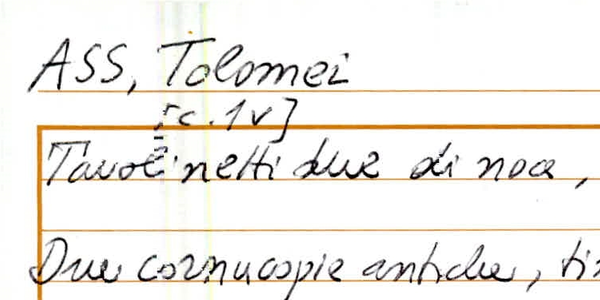 ASS, Tolomei
[c. 1v]
Tavolinetti due di noce,
Due cornucopie antiche,